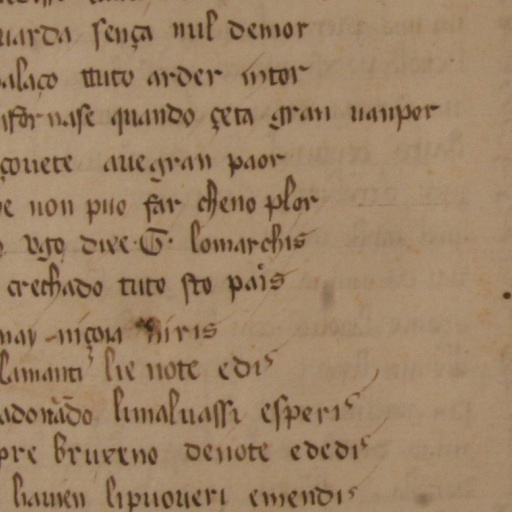 uarda sença nul demor
palaço tuto arder intor
nfornase quando çeta gran uanpor
çouete aue gran paor
e non puo far cheno plor
Vgo dixe T. lomarchis
crechado tuto sto païs
may niçoia niris
lamanti lie note edis
adorãdo limaluassi esperis
pre bruxeno denote ededis
liauien lipuoueri emendis